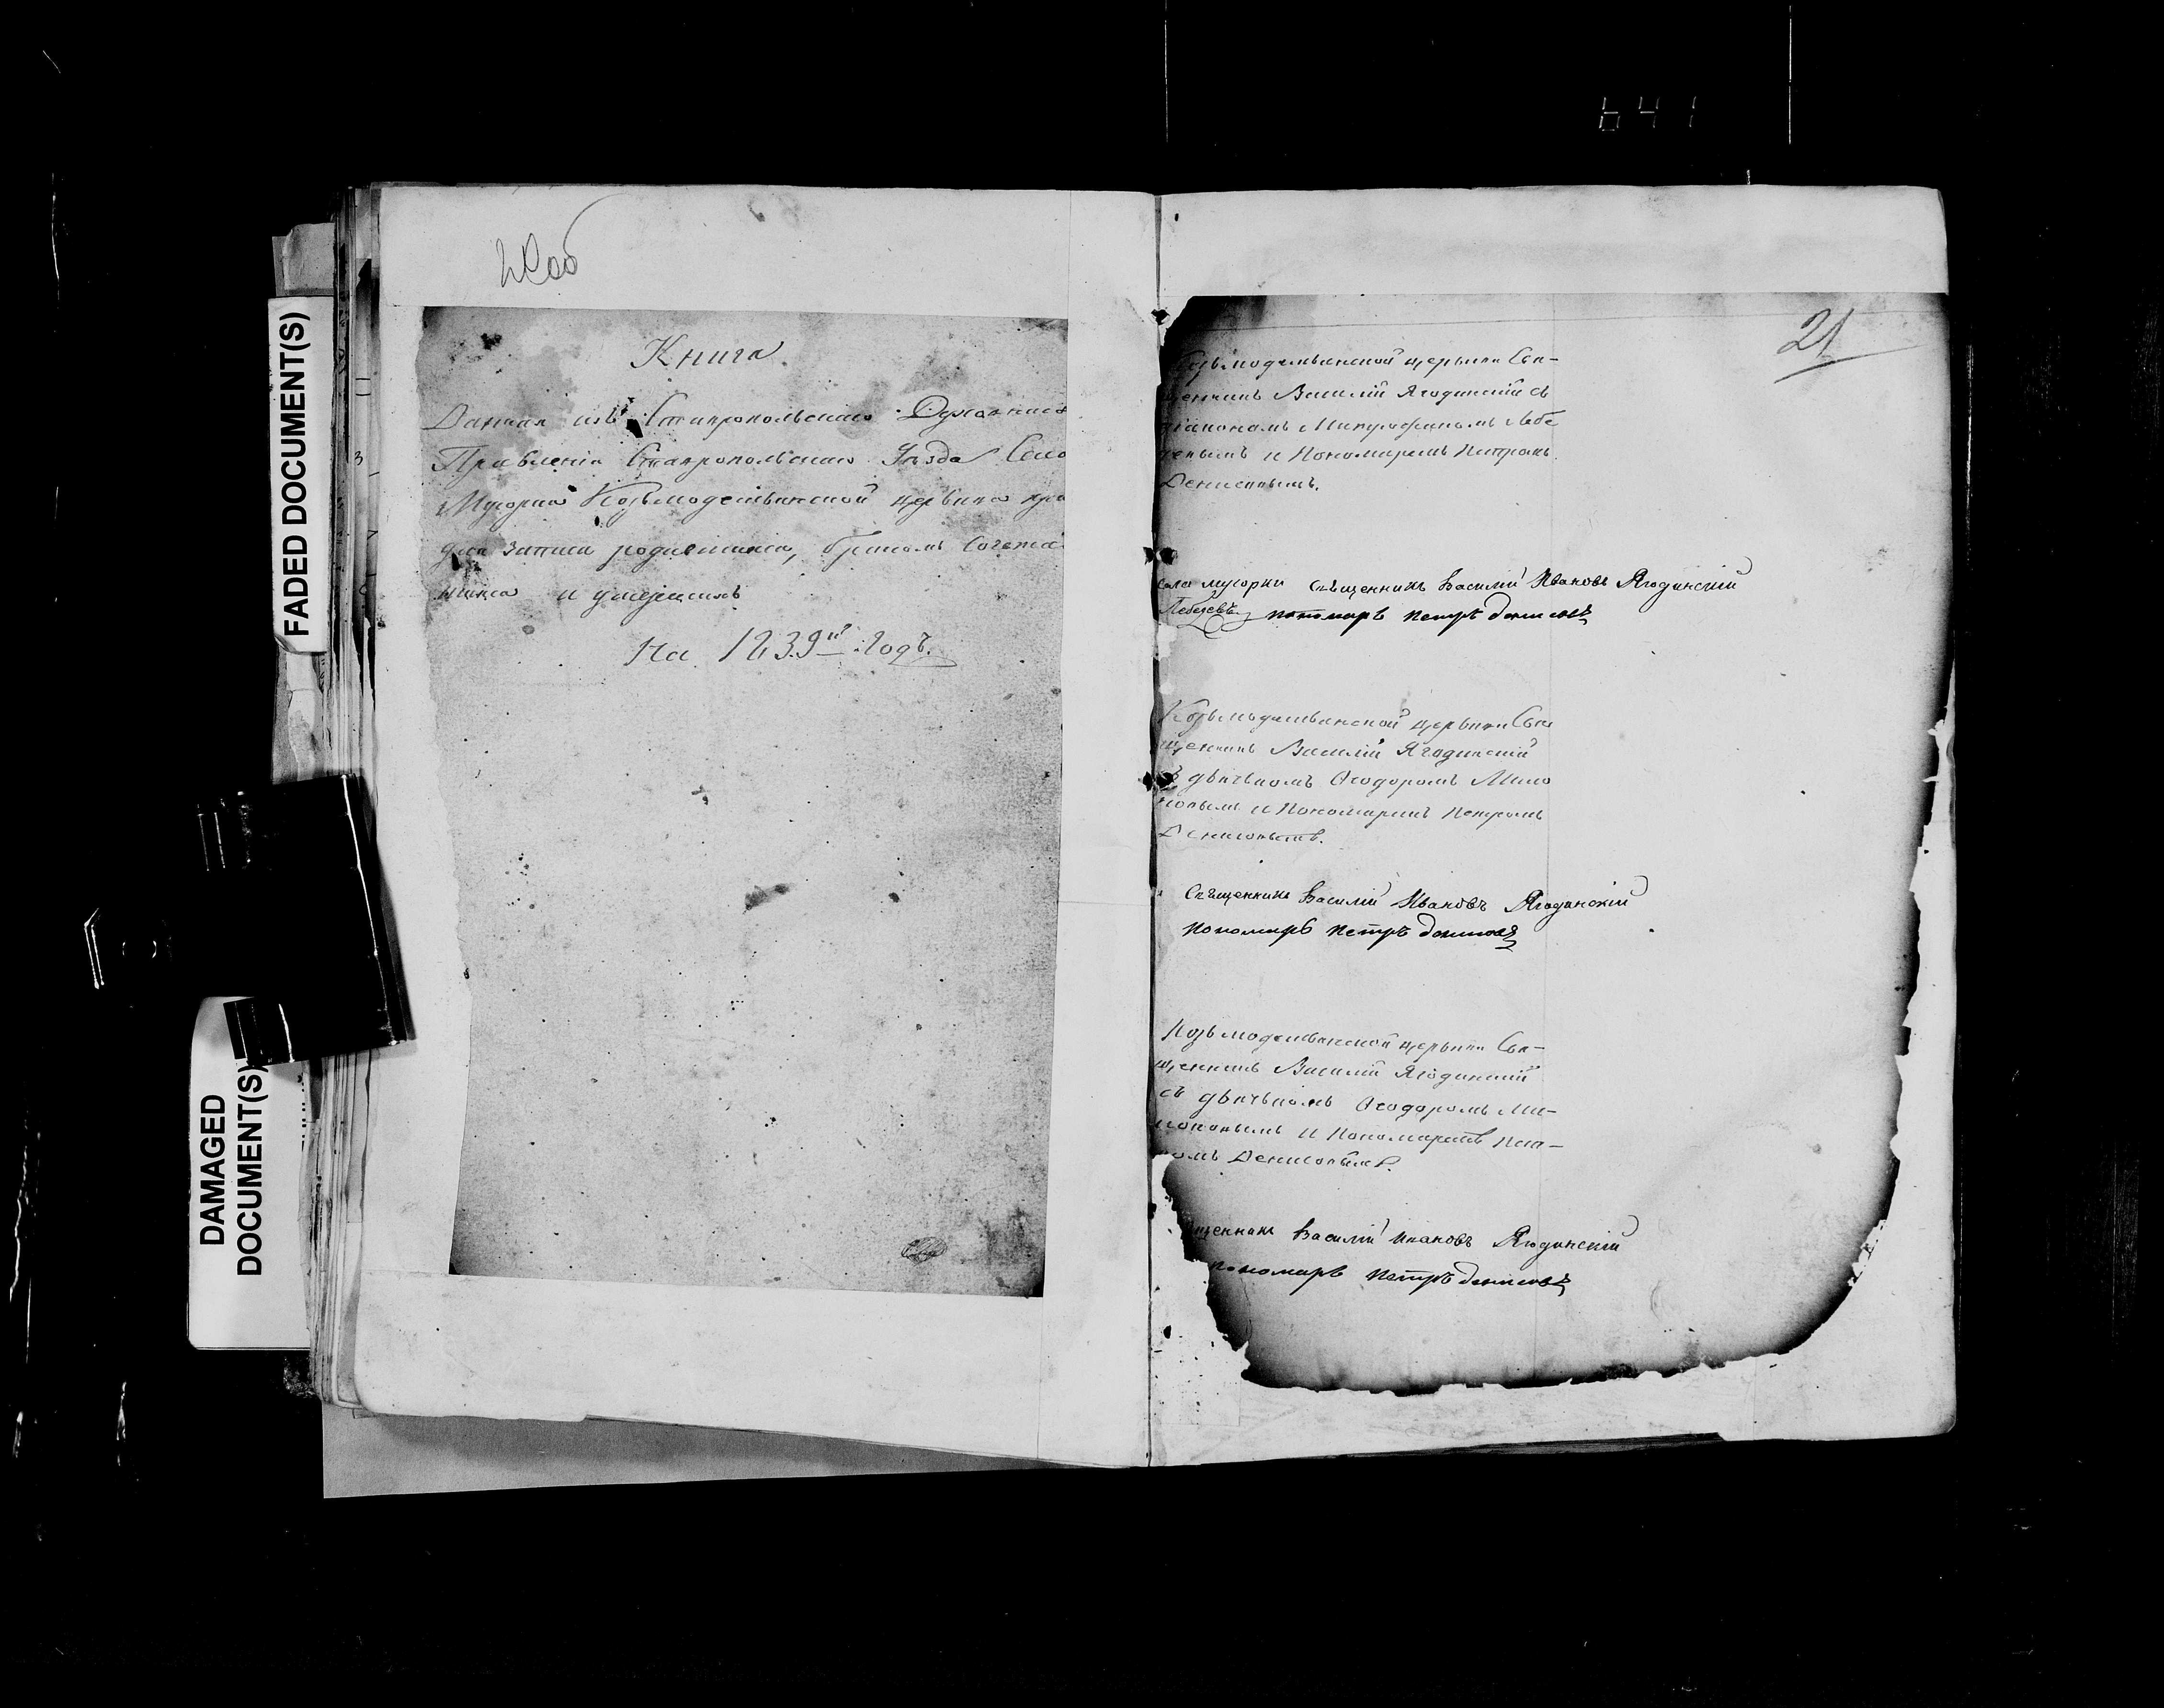 641
FADED DOCUMENT(S)
DAMAGED
DOCUMENT(S)
Книга
Данная изъ Ставропольскаго Духовнаго
Правленія Ставропольскаго Уѣзда Села
Мусорки Козьмодемьянской церкви
для записи родившихся, бракомъ сочета
шихся и умершихъ
На 1839й Годъ.
21
Козьмодемьянской церкви Свя-
щенникъ Василій Ягодинскій съ
діакономъ Митрофаномъ Лебе
девымъ и Пономаремъ Петромъ
Денисовымъ.
села мусорки священникъ Василій Ивановъ Ягодинскій
Лебедевъ пономарь петръ денисовъ
Козьмодемьянской церкви Свя
щенникъ Василій Ягодинскій
съ дьячькомъ Ѳеодоромъ Мило
новымъ и Пономаремъ Петромъ
Денисовымъ.
Священникъ Василій Ивановъ Ягодинскій
пономарь петръ денисовъ
Козьмодемьянской церкви Свя-
щенникъ Василій Ягодинскій
съ дьячькомъ Ѳеодоромъ Ми-
лоновымъ и Пономаремъ Пет-
ромъ Денисовымъ.
щенникъ Василій Ивановъ Ягодинскій
пономарь петръ денисовъ